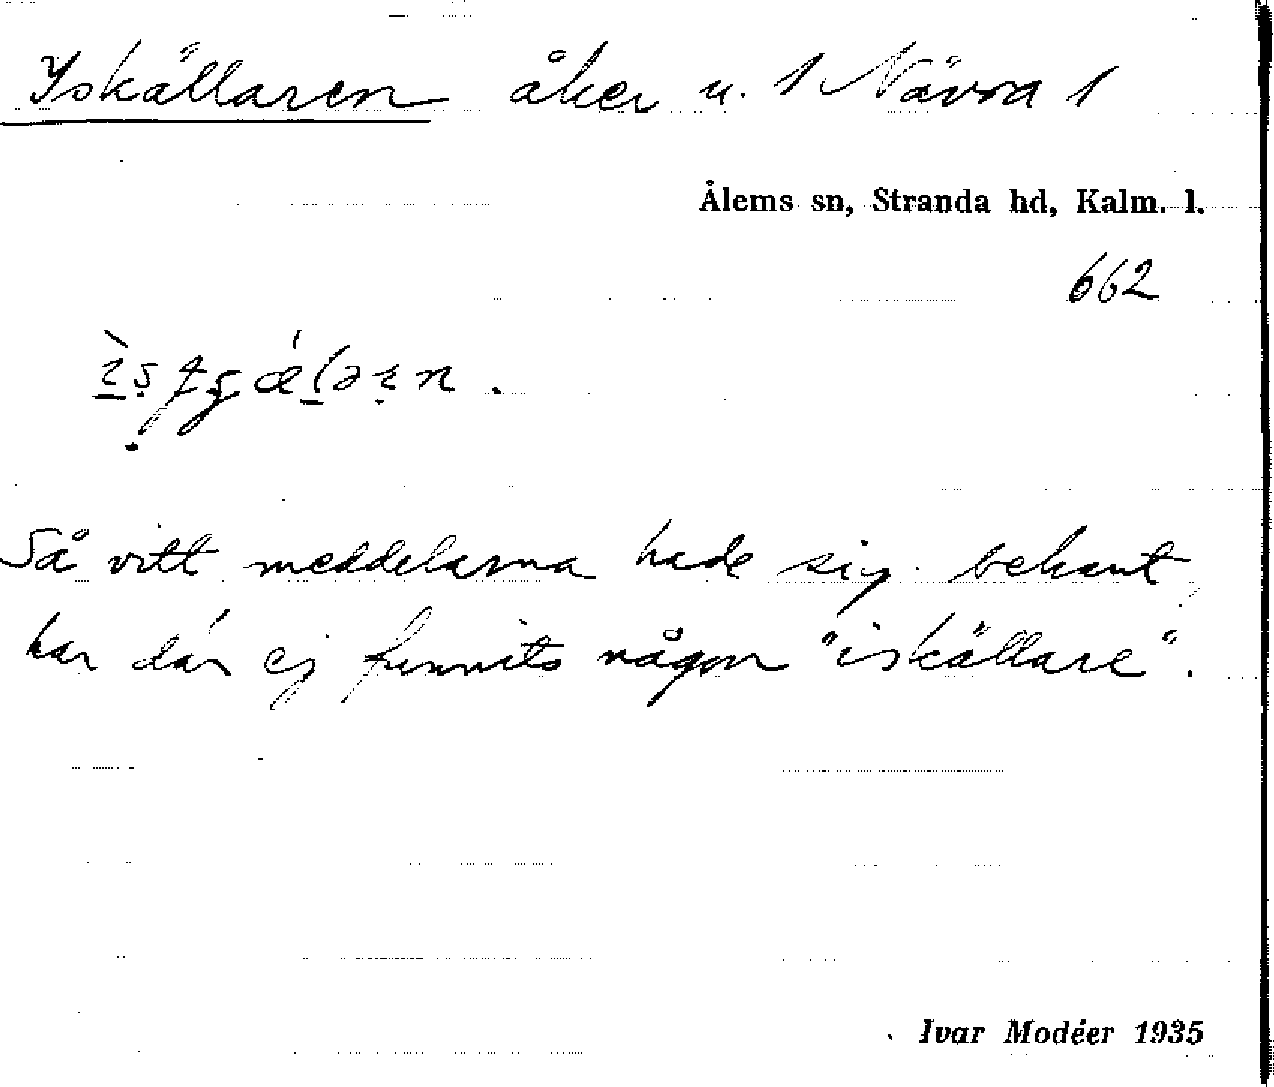 Iskällaren åker u. 1 Nävra 1
Ålems sn, Stranda hd, Kalm. l.
662
Så vitt meddelarna hade sig bekant
har där ej funnits någon "iskällare".
Ivar Modéer 1935